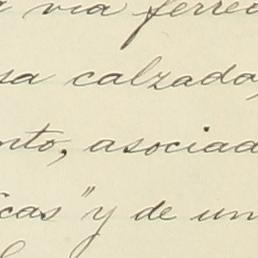 a via ferrea
sa calzado,
nto, asociad
icas" y de un